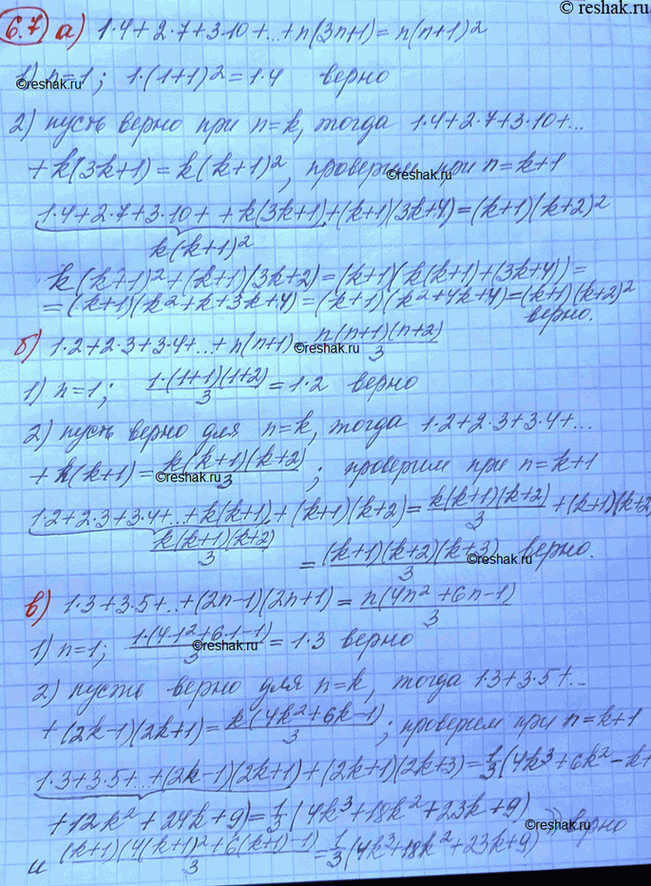 © reshak.ru
6.7 а) 1·4+2·7+3·10+..+n(3n+1)=n(n+1)²
1) n=1; 1·(1+1)²=1·4 верно
©reshak.ru
2) пусть верно при n=k, тогда 1·4+2·7+3·10+...
+k(3k+1)=k(k+1)², проверим при n=k+1
©reshak.ru
1·4+2·7+3·10+ +k(3k+1)+(k+1)(3k+4)=(k+1)(k+2)²
k(k+1)²
k(k+1)²+(k+1)(3k+2)=(k+1)(k(k+1)+(3k+4))=
=(k+1)(k²+k+3k+4)=(k+1)(k²+4k+4)=(k+1)(k+2)²
верно.
б) 1·2+2·3+3·4+...+n(n+1) n(n+1)(n+2)/3
©reshak.ru
1) n=1; 1·(1+1)(1+2)/3=1·2 верно
2) пусть верно для n=k, тогда 1·2+2·3+3·4+...
+k(k+1)=k(k+1)(k+2)/3; проверим при n=k+1
©reshak.ru
1·2+2·3+3·4+..+k(k+1)+(k+1)(k+2)=k(k+1)(k+2)/3+(k+1)(k+2)
k(k+1)(k+2)/3
=(k+1)(k+2)(k+3)/3 верно.
©reshak.ru
в) 1·3+3·5+..+(2n-1)(2n+1)=n(4n²+6n-1)/3
1) n=1; 1·(4·1²+6·1-1)/3=1·3 верно
©reshak.ru
2) пусть верно для n=k, тогда 1·3+3·5+..
+(2k-1)(2k+1)=k(4k²+6k-1)/3; проверим при n=k+1
1·3+3·5+..+(2k-1)(2k+1)+(2k+1)(2k+3)=1/3(4k³+6k²-k+
+12k²+24k+9)=1/3(4k³+18k²+23k+9)
и (k+1)(4(k+1)²+6(k+1)-1)/3=1/3(4k³+18k²+23k+9) ⇒ верно
©reshak.ru